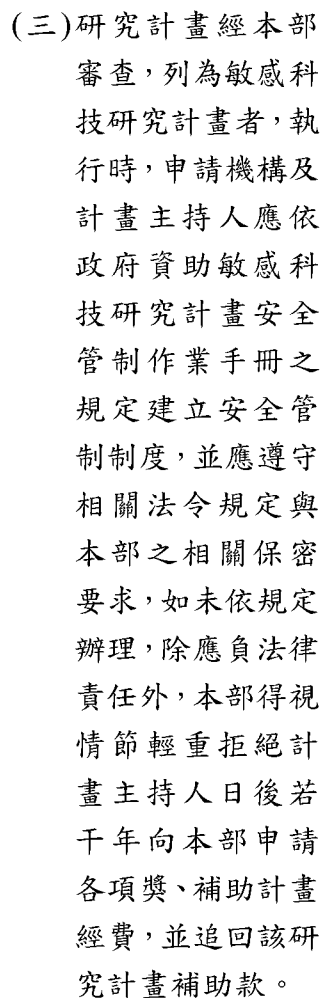 (三)研究計畫經本部
審查，列為敏感科
技研究計畫者，執
行時，申請機構及
計畫主持人應依
政府資助敏感科
技研究計畫安全
管制作業手冊之
規定建立安全管
制制度，並應遵守
相關法令規定與
本部之相關保密
要求，如未依規定
辦理，除應負法律
責任外，本部得視
情節輕重拒絕計
畫主持人日後若
干年向本部申請
各項獎、補助計畫
經費，並追回該研
究計畫補助款。